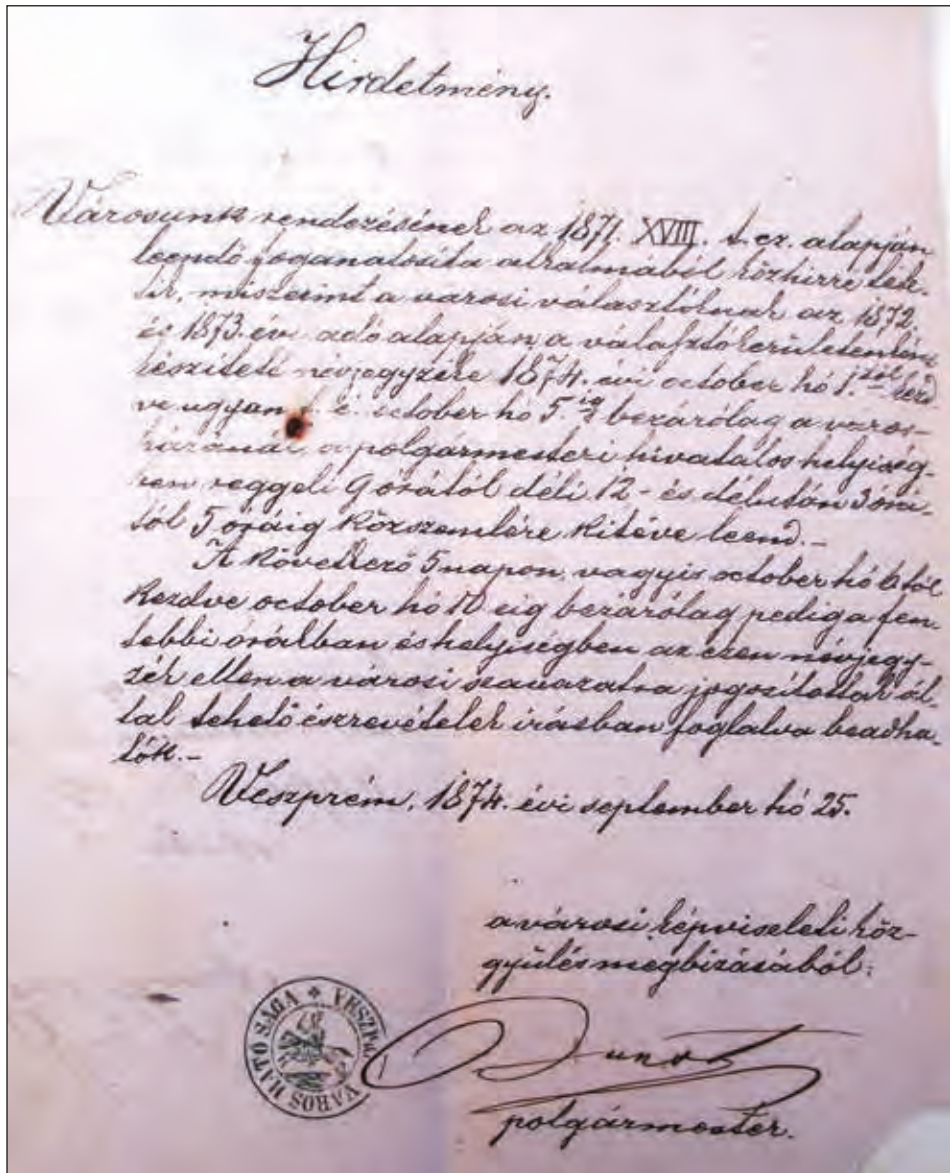 Hirdetmény.
Városunk rendezésének az 1871. XVIII. t. cz. alapján
leendő foganatosítása alkalmából közhirré téte-
tik, miszerint a városi választóknak az 1872.
és 1873. évi adó alapján a választókerületenként
készített névjegyzéke 1874. évi october hó 1ső től kezd-
ve ugyan é. october hó 5ig bezárólag a város-
házánál a polgármesteri hivatalos helyiség-
ben reggeli 9 órától déli 12- és délután 3 órá-
tól 5 óráig közszemlére kitéve leend.-
A következő 5 napon vagyis october hó 6 tól
kezdve october hó 10 eig bezárólag pedig a fen-
tebbi órákban és helyiségben az ezen névjegy-
zék ellen a városi szavazatra jogosítottak ál-
tal tehető észrevételek irásban foglalva beadha-
tók.-
Veszprém, 1874. évi september hó 25.
a városi képviseleti köz-
gyülés megbizásából:
polgármester.
VESZP. VÁROS HATÓSÁGA